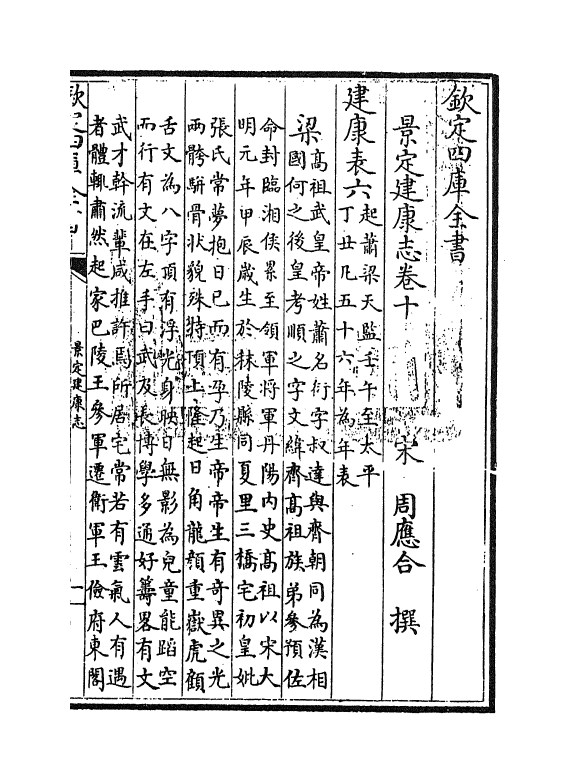 欽定四庫全書
景定建康志卷十 宋 周應合 撰
建康表六 起蕭梁天監壬午至太平
丁丑凡五十六年為年表
梁 髙祖武皇帝姓蕭名衍字叔達與齊朝同為漢相
國何之後皇考順之字文緯齊髙祖族弟參預佐
命封臨湘侯景至領軍將軍丹陽内史髙祖以宋大
明元年甲辰嵗生於秣陵縣同夏里三橋宅初皇妣
張氏常夢抱日已而有孕乃生帝帝生有竒異之光
兩骻駢骨狀貌殊特頂上隆起日角龍顔重嶽虎顧
舌文為八字頂有浮光身映日無影為兒童能蹈空
而行有文在左手曰武及長博學多通好籌畧有文
武才幹流輩咸推許焉所居宅常若有雲氣人有遇
者體輒肅然起家巴陵王參軍遷衛軍王儉府東閣
欽定四庫全書
景定建康志
一